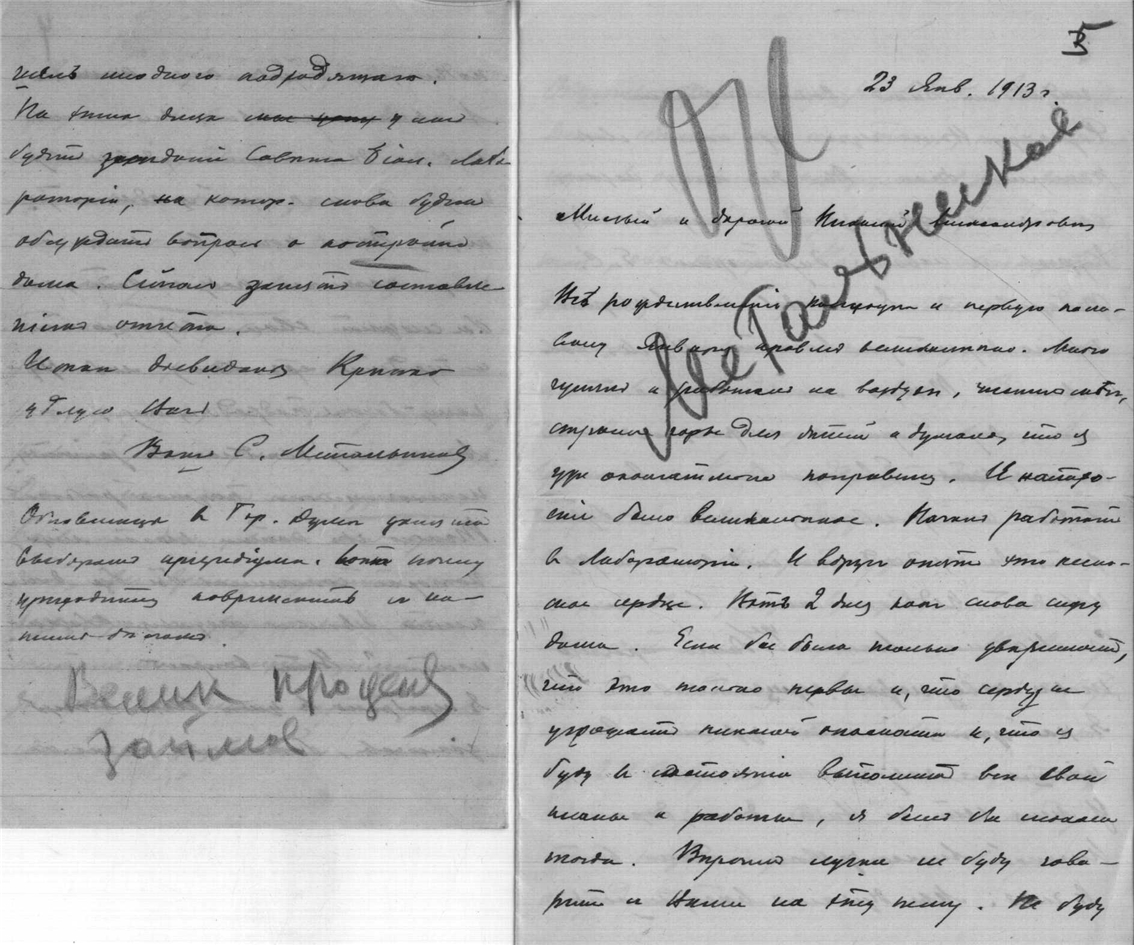 подходящаго.
На этих днях у нас
будет заседание Совета Биол. Лабо
раторiи, на котор. снова будем
обсуждать вопрос о постройке
дома. Сейчас занят составле
нiем отчета.
Крепко
целую Вас
Ваш С. Метальников
в Гор. Думе заняты
выборами президiума.
Велик процент
займов
5
23 Янв. 1913 г.
Милый и дорогой Николай Александрович
Все рождественскiе каникулы и первую поло-
вину Января провел великолепно. Много
гулял и работал на воздухе,
строил горы для детей и думал, что я
уже окончательно поправился. И настро-
енiе было великолепное. Начал работать
в Лабораторiи. И вдруг опять это
сердце. Вот 2 дня как снова сижу
дома. Если бы была только уверенность,
что это только нервы и, что сердцу не
угрожает никакой опасности и, что я
буду в состоянiи выполнить все свои
планы и работы, я был бы
тогда. Впрочем лучше не буду гово-
рить с Вами на эту тему. Не буду